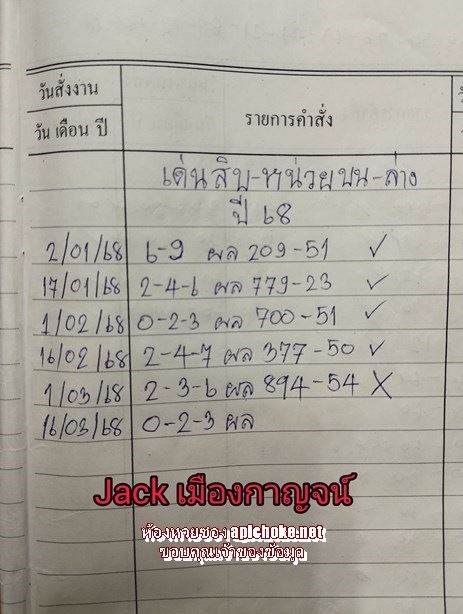 วันสั่งงาน
วัน เดือน ปี
รายการคำสั่ง
เด่นสิบ-หน่วยบน-ล่าง
ปี 68
2/01/68 6-9 ผล 209-51 ✓
17/01/68 2-4-6 ผล 779-23 ✓
1/02/68 0-2-3 ผล 700-51 ✓
16/02/68 2-4-7 ผล 377-50 ✓
1/03/68 2-3-6 ผล 894-54 X
16/03/68 0-2-3 ผล
Jack เมืองกาญจน์
ห้องหวยซอง apichoke.net
ขอบคุณเจ้าของข้อมูล